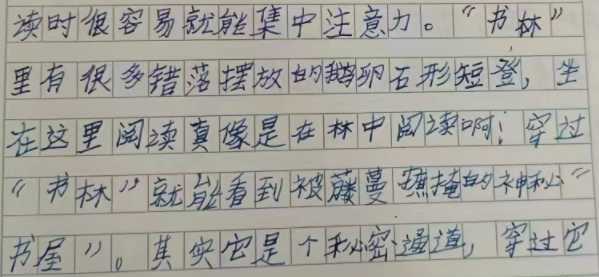 读时很容易就能集中注意力。“书林”
里有很多错落摆放的鹅卵石形短登，坐
在这里阅读真像是在林中阅读啊！穿过
“书林”就能看到被藤蔓掩的神秘“
书屋”。其实它是个秘密通道，穿过它